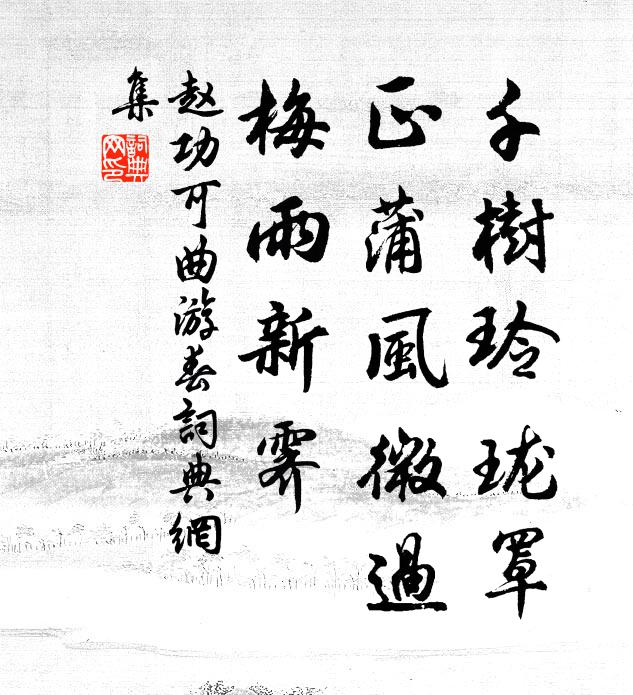 千樹玲瓏罩
正蒲風微過
梅雨新霽
赵功可曲游春詞典網
集
詞典
网印